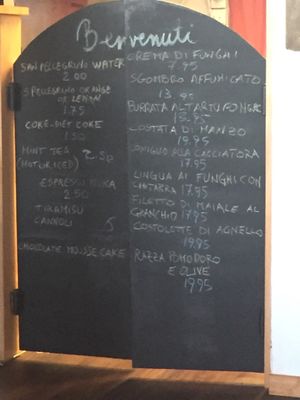 Benvenuti
SAN PELLEGRINO WATER
2.00
S PELLEGRINO ORANGE
OR LEMON
1.75
COKE-DIET COKE
1.50
MINT TEA
(HOT OR ICED) 2.50
ESPRESSO
2.50
TIRAMISU
CANNOLI 5
CHOCOLATE MOUSSE CAKE
CREMA DI FUNGHI
7.95
SGOMBRO AFFUMICATO
13.95
BURRATA AL TARTUFO
15.95
COSTATA DI MANZO
19.95
CONIGLIO ALLA CACCIATORA
17.95
LINGUA AI FUNGHI CON
17.95
FILETTO DI MAIALE AL
GRANCHIO 17.95
COSTOLETTE DI AGNELLO
19.95
RAZZA POMODORO
E OLIVE
19.95